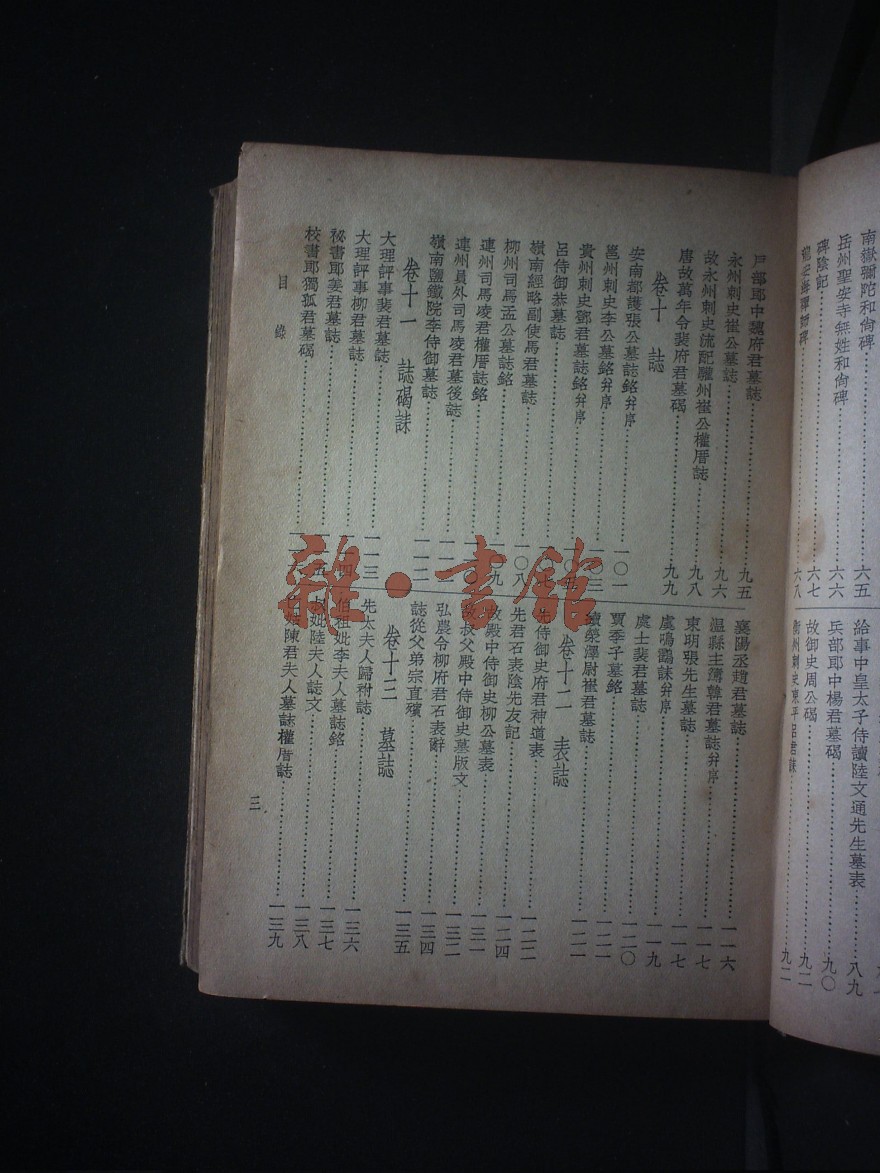 南嶽彌陀和尚碑……六五
岳州聖安寺無姓和尚碑……六六
碑陰記……六七
龍安海禪師碑……六八
給事中皇太子侍讀陸文通先生墓表……八九
兵部郎中楊君墓碣……九〇
故御史周公碣……九二
衡州刺史東平呂君誄……九二
戶部郎中魏府君墓誌……九五
永州刺史崔公墓誌……九六
故永州刺史流配驩州崔公權厝誌……九八
唐故萬年令裴府君墓碣……九九
卷十 誌
安南都護張公墓誌銘并序……一〇一
邕州刺史李公墓銘并序……一〇三
貴州刺史鄧君墓誌銘并序
呂侍御恭墓誌
嶺南經略副使馬君墓誌……一〇八
柳州司馬孟公墓誌銘……一〇九
連州司馬凌君權厝誌銘
連州員外司馬凌君墓後誌……一一一
嶺南鹽鐵院李侍御墓誌……一一二
卷十一 誌碣誄
大理評事裴君墓誌……一一三
大理評事柳君墓誌
祕書郎姜君墓誌
校書郎獨孤君墓碣
襄陽丞趙君墓誌……一一六
溫縣主簿韓君墓誌并序……一一七
東明張先生墓誌……一一七
虞鳴鶴誄并序……一一九
處士裴君墓誌……一二〇
賈季子墓銘……一二一
續滎澤尉崔君墓誌……一二一
卷十二 表誌
先侍御史府君神道表……一二二
先君石表陰先友記……一二四
故殿中侍御史柳公墓表……一三一
故叔父殿中侍御史墓版文……一三二
弘農令柳府君石表辭……一三四
誌從父弟宗直殯……一三五
卷十三 墓誌
先太夫人歸祔誌……一三六
伯祖妣李夫人墓誌銘……一三七
叔妣陸夫人誌文……一三八
伯姊陳君夫人墓誌權厝誌……一三九
目錄
三
雜·書館